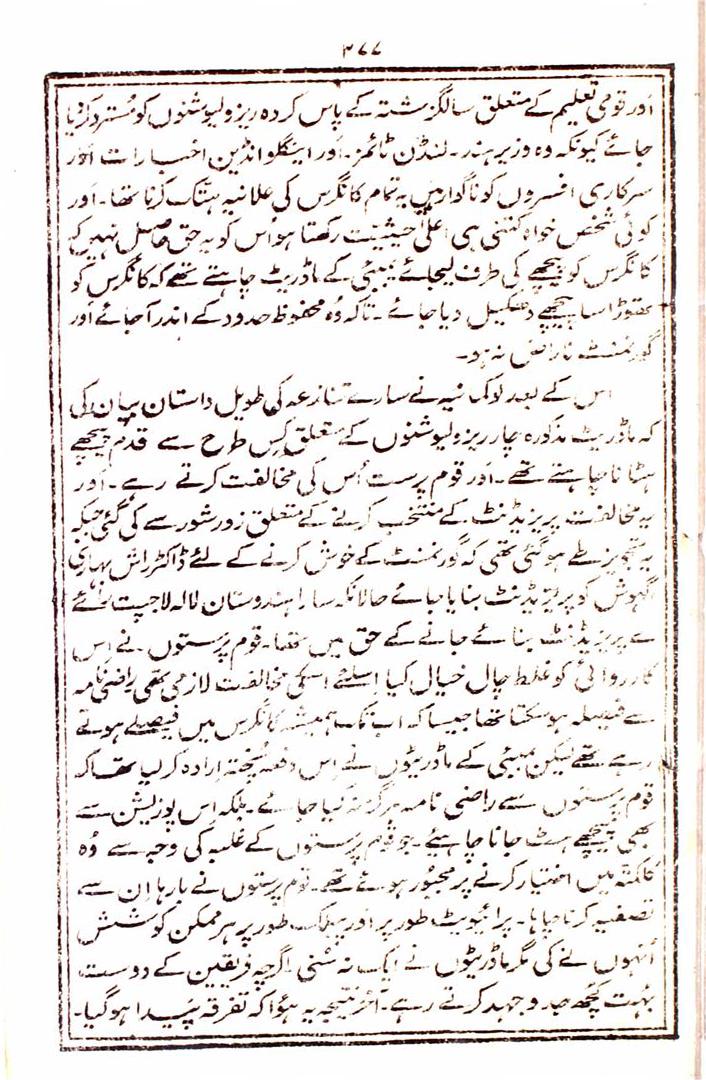 ۳۷۷
اَور قومی تعلیم کے متعلق سالگزشتہ کے پاس کردہ ریزولیوشنوں کو مُسترد کر دیا
جائے کیونکہ وہ وزیر ہند۔ لنڈن ٹائمز۔ اَور اینگلو انڈین اخبارات اَور
سرکاری افسروں کو ناگوار ہیں یہ تمام کانگرس کی علانیہ ہتک کرنا تھا۔ اَور
کوئی شخص خواہ کتنی ہی اعلیٰ حیثیت رکھتا ہو اُس کو یہ حق حاصل نہیں کہ
کانگرس کو پیچھے کی طرف لیجائے بمبئی کے ماڈریٹ چاہتے تھے کہ کانگرس کو
تھوڑا سا پیچھے دھکیل دیا جائے۔ تاکہ وُہ محفوظ حدود کے اندر آجائے اَور
گورنمنٹ ناراض نہ ہو۔
اس کے بعد لوک مانیہ نے سارے تنازعہ کی طویل داستان بیان کی
کہ ماڈریٹ مذکورہ چار ریزولیوشنوں کے متعلق کِس طرح سے قدم پیچھے
ہٹانا چاہتے تھے۔ اَور قوم پرست اُس کی مخالفت کرتے رہے۔ اَور
یہ مخالفت پریزیڈنٹ کے منتخب کرنے کے متعلق زور شور سے کی گئی جبکہ
یہ تجویز طے ہوگئی تھی کہ گورنمنٹ کے خوش کرنے کے لئے ڈاکٹر راش بہاری
گھوش کو پریزیڈنٹ بنایا جائے حالانکہ سارا ہندوستان لالہ لاجپت رائے
کے پریزیڈنٹ بنائے جانے کے حق میں تھا۔ قوم پرستوں نے اِس
کارروائی کو غلط چال خیال کیا اِسلئے اسکی مخالفت لازمی تھی راضی نامہ
سے فیصلہ ہو سکتا تھا جیسا کہ اب تک ہمیشہ کانگرس میں فیصلے ہوتے
رہے تھے لیکن بمبئی کے ماڈریٹوں نے اِس دفعہ پُختہ اِرادہ کر لیا تھا کہ
قوم پرستوں سے راضی نامہ ہرگز نہ کیا جائے۔ بلکہ اس پوزیشن سے
بھی پیچھے ہٹ جانا چاہیئے۔ جو قوم پرستوں کے غلبہ کی وجہ سے وُہ
کلکتہ میں اختیار کرنے پر مجبُور ہوئے تھے۔ قوم پرستوں نے بارہا اِن سے
تصفیہ کرنا چاہا۔ پرائیویٹ طور پر اَور پبلک طور پر ہر ممکن کوشش
اُنہوں نے کی مگر ماڈریٹوں نے ایک نہ سُنی اگرچہ فریقین کے دوست
بہُت کچھ جد و جہد کرتے رہے۔ آخر نتیجہ یہ ہوُا کہ تفرقہ پَیدا ہوگیا۔